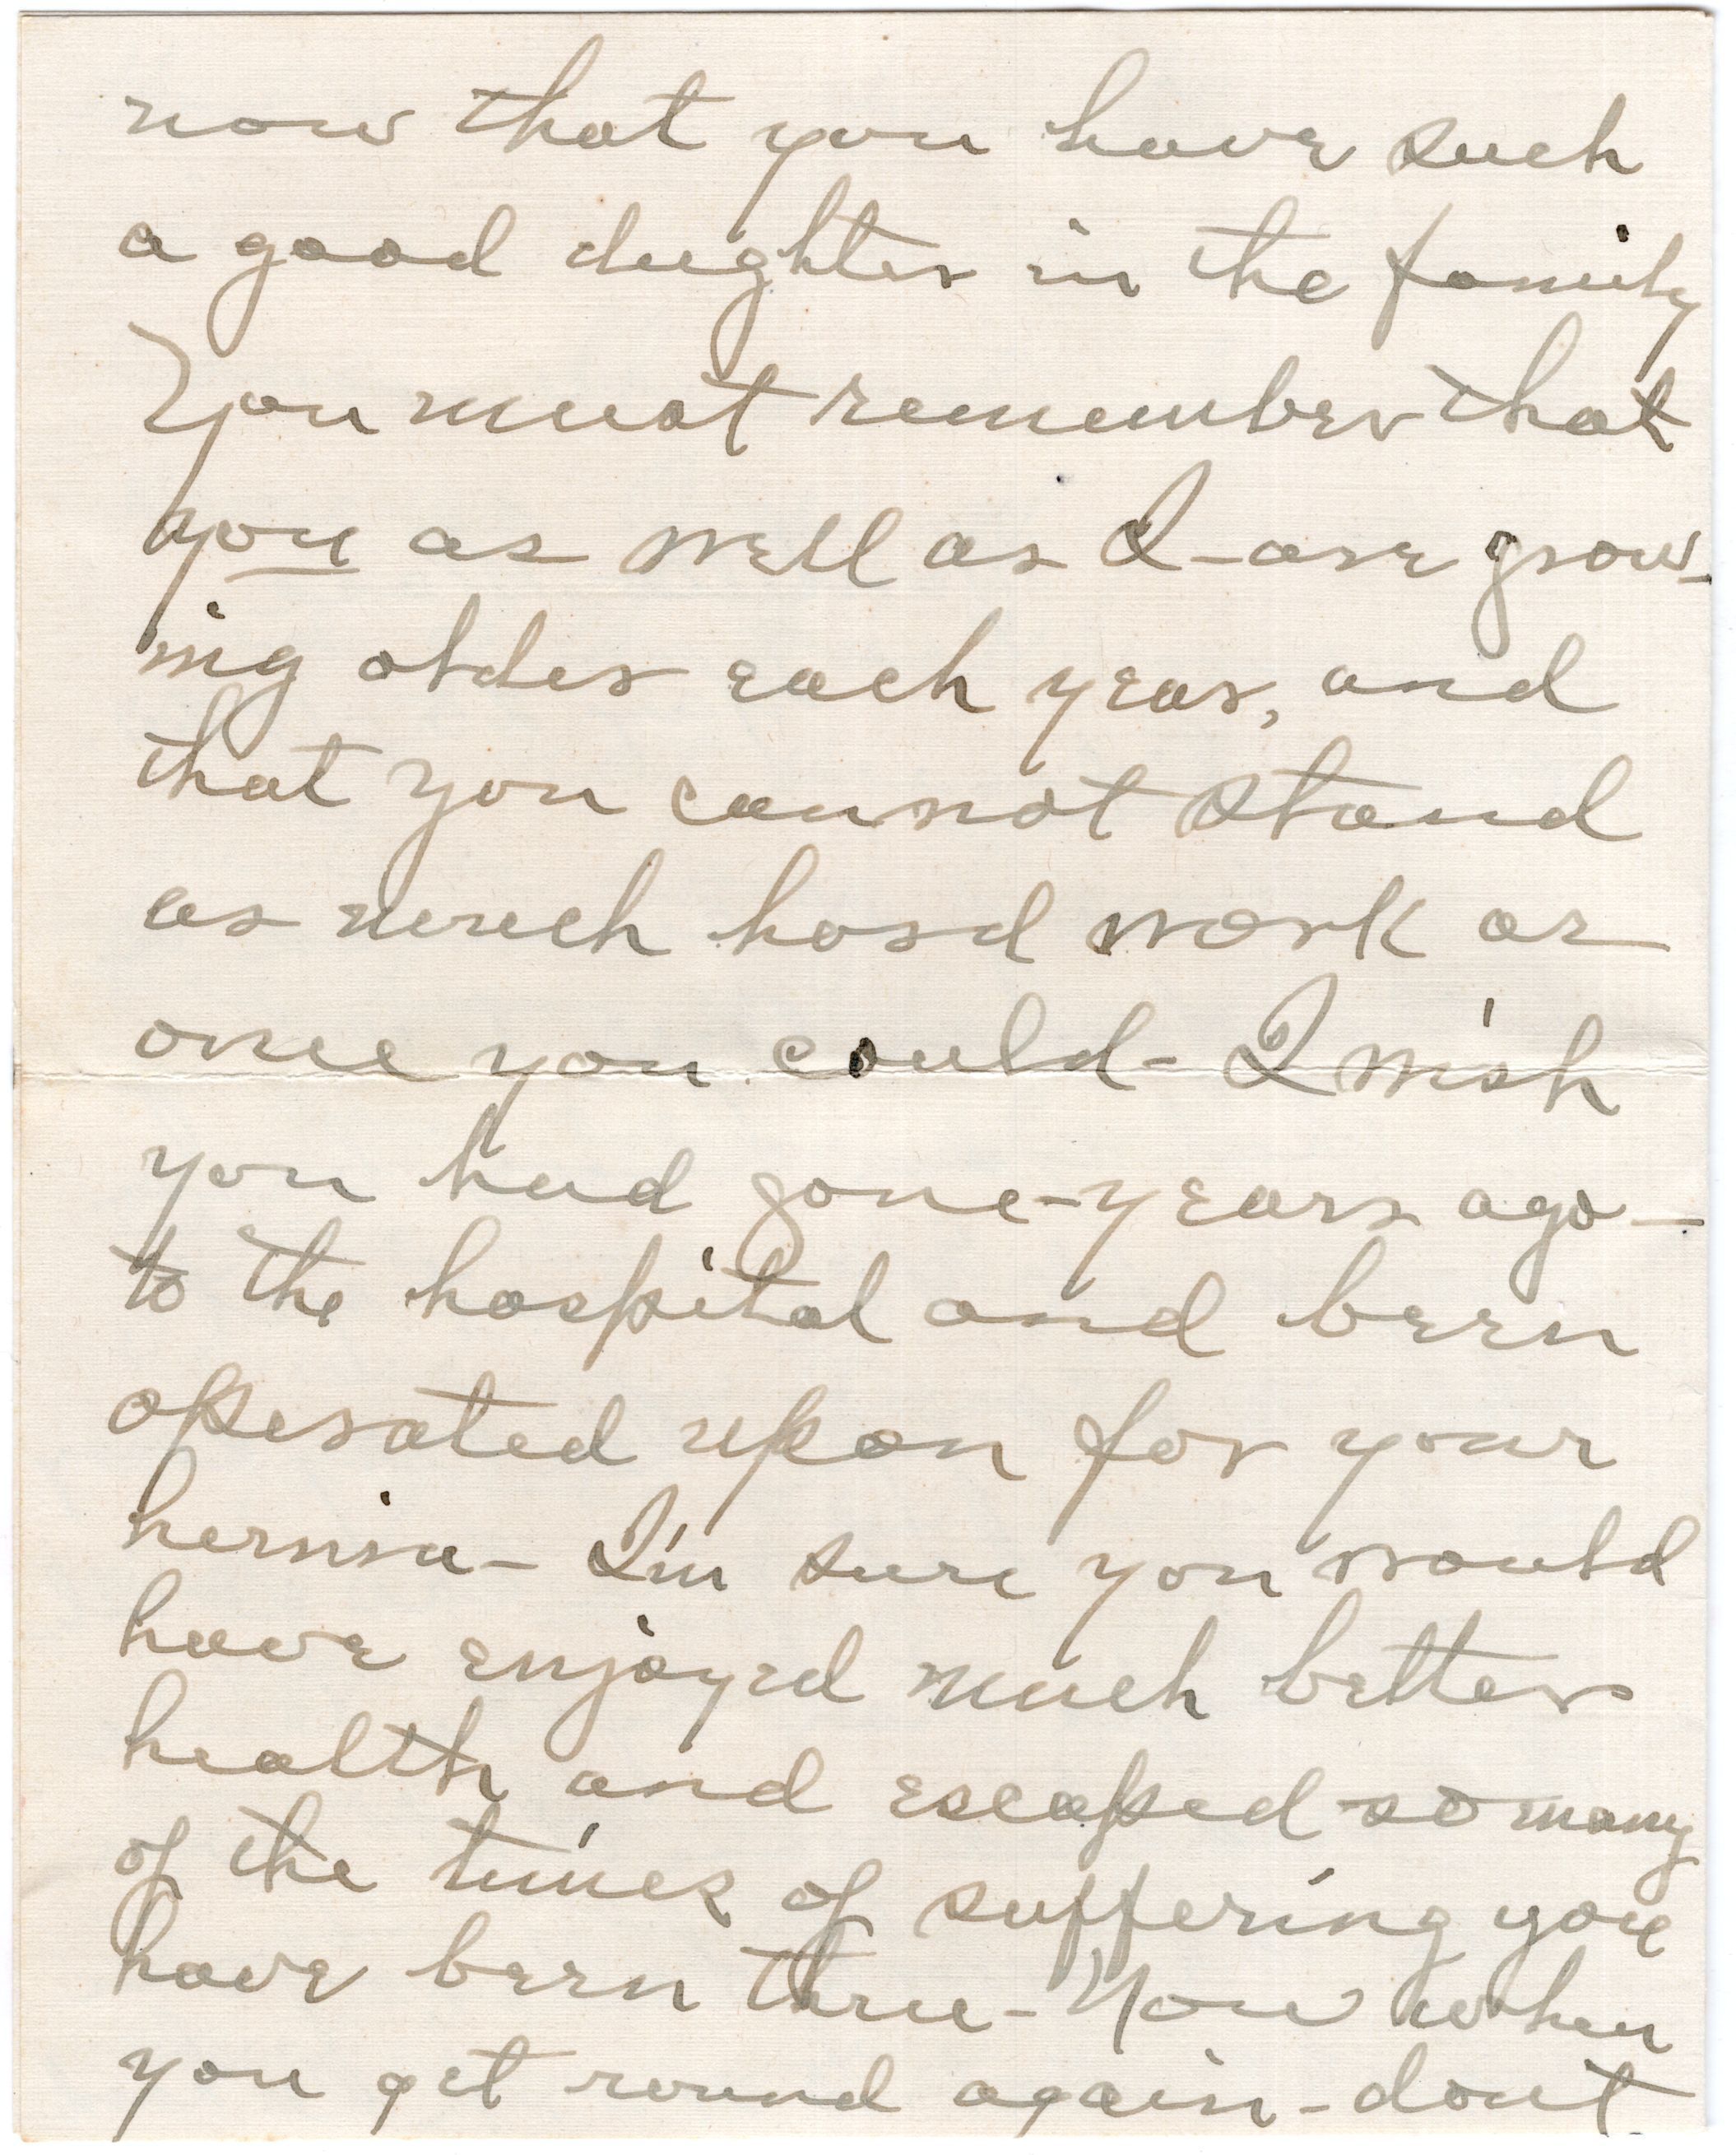 now that you have such
a good dughter in the family
You must remember that
you as well as I - are grow-
ing older each year, and
that you cannot stand
as much hard work as
once you could - I wish
you had gone - years ago -
to the hospital and been
operated upon for your
hernia - I'm sure you would
have enjoyed much better
health and escaped so many
of the times of suffering you
have been thru - Now when
you get round again - don't